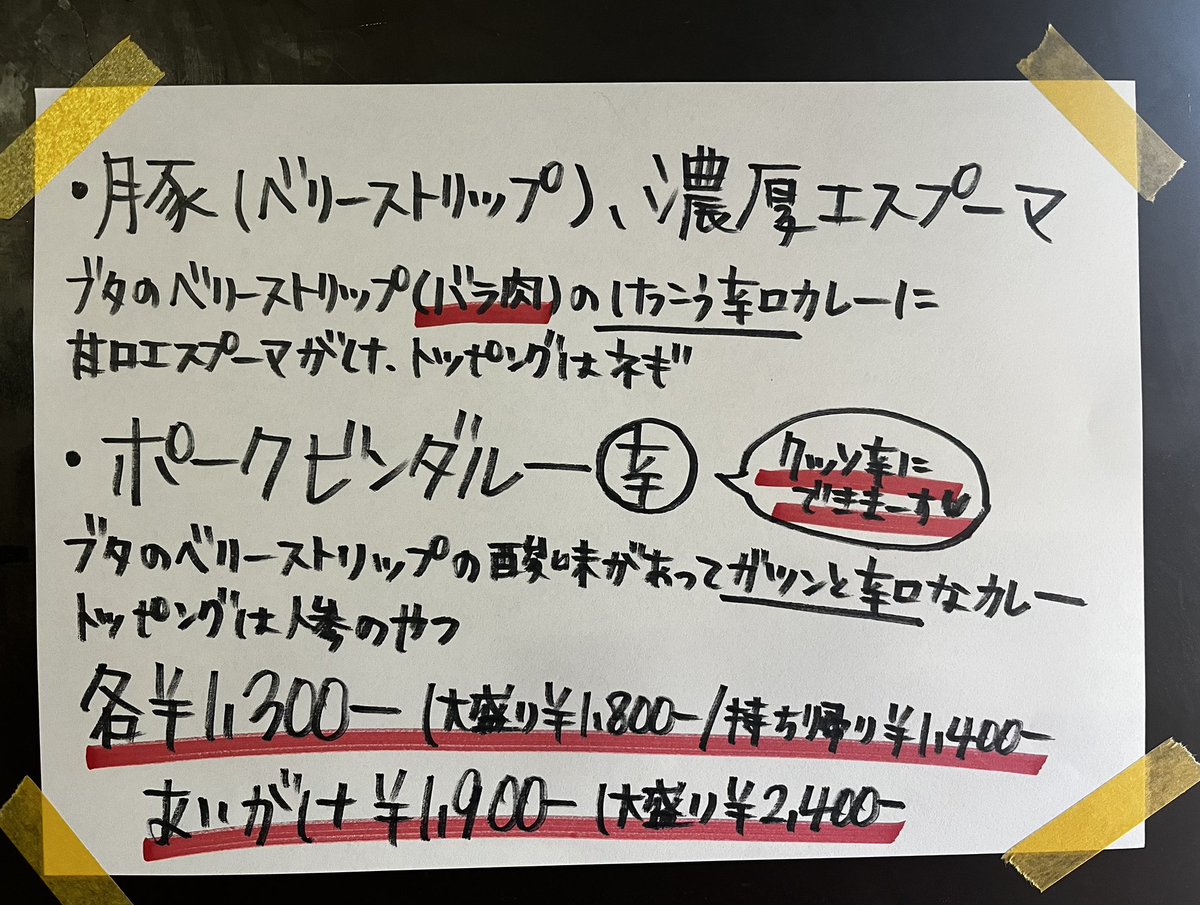 ・豚(ベリーストリップ)、濃厚エスプーマ
ブタのベリーストリップ(バラ肉)のけっこう辛口カレーに
甘口エスプーマがけ、トッピングはネギ
・ポークビンダルー辛
クッソ辛に
できまーす♥
ブタのベリーストリップの酸味があってガツンと辛口なカレー
トッピングは人参のやつ
各¥1,300ー (大盛り¥1,800ー/持ち帰り¥1,400ー
あいがけ¥1,900ー (大盛り¥2,400ー